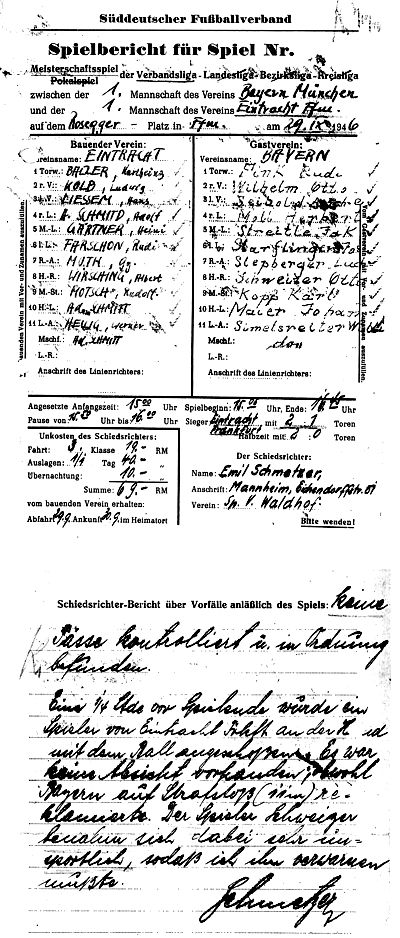 Süddeutscher Fußballverband
Spielbericht für Spiel Nr.
Meisterschaftsspiel
Pokalspiel der Verbandsliga - Landesliga - Bezirksliga - Kreisliga
zwischen der 1. Mannschaft des Vereins Bayern München
und der 1. Mannschaft des Vereins Eintracht Ffm.
auf dem Rosegger - Platz in Ffm. am 29. IX. 1946
Bauender Verein:
Vereinsname: EINTRACHT
1 Torw.:
2 r. V.: KOLB, Ludwig
3 l. V.: LIESEM, Hans
4 r. L.: A. SCHMITD, Adolf
5 M.-L.: GÄRTNER, Heini
6 l. L.: FARSCHON, Rudi
7 R.-A.: MUTH, Gg.
8 H.-R.: WIRSCHING, Albert
9 M.-St.: MOTSCH, Rudolf
10 H.-L.: Ad. SCHMITT
11 L.-A.: HEILIG, Werner
Mschf.: Ad. SCHMITT
L.-R.:
Anschrift des Linienrichters:
Gastverein:
Vereinsname: BAYERN
1 Torw.: Fink Rudi
2 r. V.: Wilhelm Otto
3 l. V.: Seibold
4 r. L.: Moll Herbert
5 M.-L.: Streitle Jak
6 l. L.: Harflinger
7 R.-A.: Stepberger Ludw
8 H.-R.: Schweizer Otto
9 M.-St.: Kopp Karl
10 H.-L.: Maier Johan
11 L.-A.: Simetsreiter
Mschf.:
L.-R.:
Anschrift des Linienrichters:
Angesetzte Anfangszeit: 15 00 Uhr Spielbeginn: 15 00 Uhr, Ende: 16 45 Uhr
Pause von 15 45 Uhr bis 16 00 Uhr Sieger Eintracht Frankfurt mit 2 1 Toren
Halbzeit mit 0 0 Toren
Unkosten des Schiedsrichters:
Fahrt: 3. Klasse 19.- RM
Auslagen: 1/4 Tag 40.- "
Übernachtung: 10.- "
Summe: 69.- RM
vom bauenden Verein erhalten:
Abfahrt 29.9. Ankunft 30.9. im Heimatort
Der Schiedsrichter:
Name: Emil Schmetzer,
Anschrift: Mannheim, Eichendorffstr. 51
Verein: Sp. V. Waldhof.
Bitte wenden!
Schiedsrichter-Bericht über Vorfälle anläßlich des Spiels: keine
Pässe kontrolliert u. in Ordnung
befunden.
Eine 1/4 Stde vor Spielende wurde ein
Spieler von Eintracht Frkft an der H d
mit dem Ball angeschossen. Es war
keine Absicht vorhanden, obwohl
Bayern auf Strafstoß (11m) re-
klamierte. Der Spieler Schweizer
benahm sich dabei sehr un-
sportlich, sodaß ich ihn verwarnen
mußte.
Schmetzer